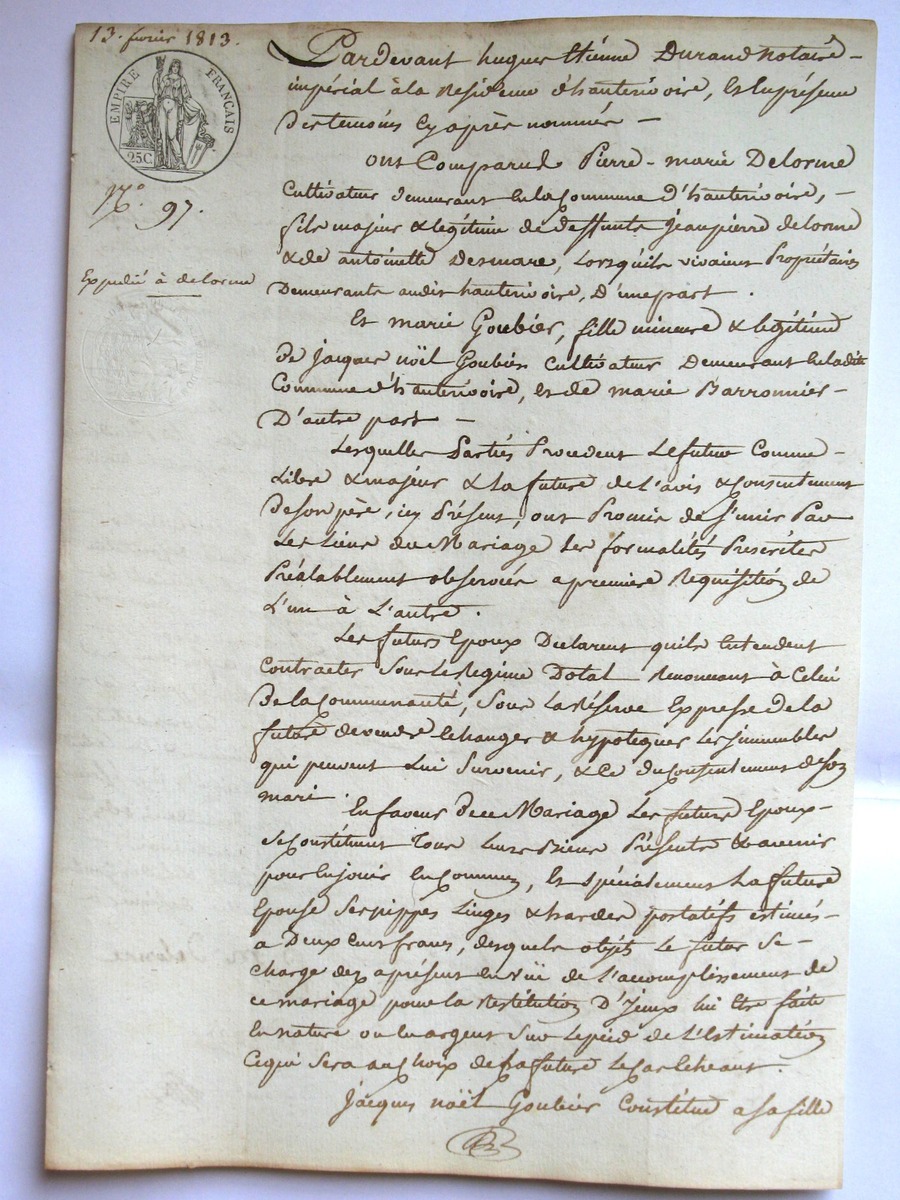 13. fevrier 1813.
EMPIRE FRANÇAIS
25C.
N.° 97.
Expedié à delorme
Pardevant hugues Etienne Durand Notaire
impérial à la Residence d'hauterivoire, En la présence
des temoins Cy après nommés
ont Comparu Pierre-marie Delorme
Cultivateur demeurant En la Commune d'hauterivoire,
fils majeur & légitime de deffunts Jeanpierre delorme
& de antoinette Desmare, Lorsquils vivaient Propriétaires
Demeurants audit hauterivoire, D'unepart.
Et marie Goubier, fille mineure & légitime
de Jacques noël Goubier Cultivateur Demeurant En ladite
Commune d'hauterivoire, et de marie Barronnier
D'autre part
Lesquelles Parties Procedent Le futur Comme
Libre & majeur & La future de L'avis & Consentement
de son père, icy Présent, ont Promis de S'unir Par
Les Liens du Mariage Les formalités Prescrites
Préalablement observées a premiere Requisition de
L'un à L'autre.
Les futurs Epoux Déclarent quils Entendent
Contracter Sous Le Regime Dotal Renonceant à Celui
De la Communauté, Sous La Réserve Expresse de la
future de vendre Echanger & hypotequer Les immeubles
qui peuvent Lui Survenir, & Ce du Consentement de Son
mari.
En faveur de ce Mariage Les futurs Epoux
se Constituent Tous Leurs Biens Présents & avenir
pour En jouir En Commun, Et spécialement La future
Epouse Ses nippes Linges & hardes portatifs estimés
a Deux Cent francs, desquels objets Le futur Se
charge dez aprésent En vüe de L'accomplissement de
ce mariage pour La Restitution D'Iceux lui Etre faite
En nature ou En argent Sur Le pied de L'Estimation
Ce qui Sera au Choix de La future Le Cas Echeant.
Jacques noël Goubier Constitue a Sa fille